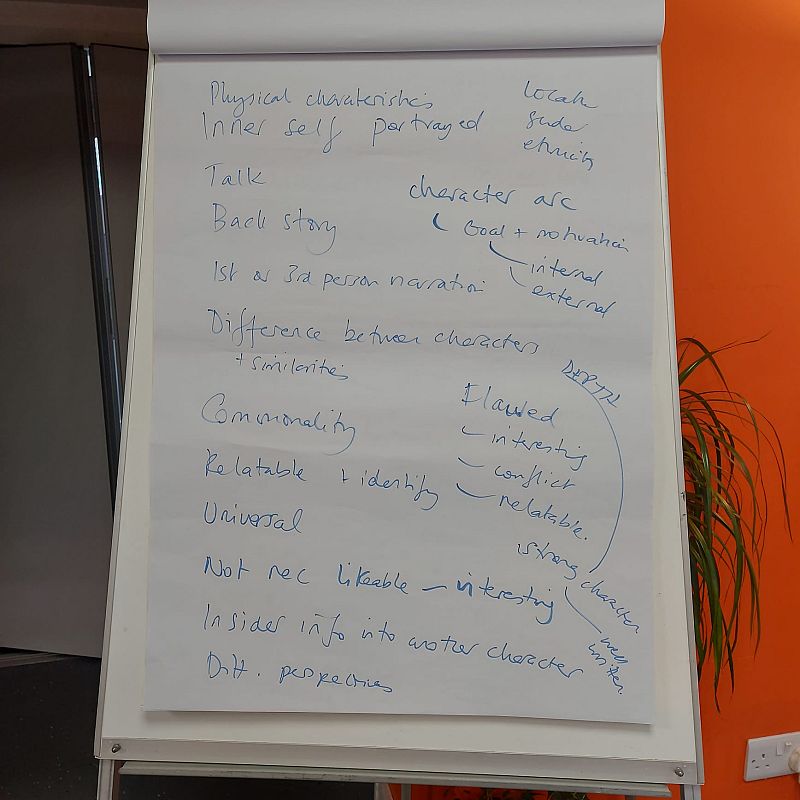 Physical charateristics
Inner self portrayed
gender
ethnicity
Talk
Back story
1st or 3rd person narration
Difference between characters
+ similarities
Commonality
Relatable + identify
Universal
Not nec likeable – interesting
Insider info into another character
Diff. perspectives
character arc
Goal + motivation
internal
external
DEPTH
Flawed
interesting
conflict
relatable.
strong character
well
written